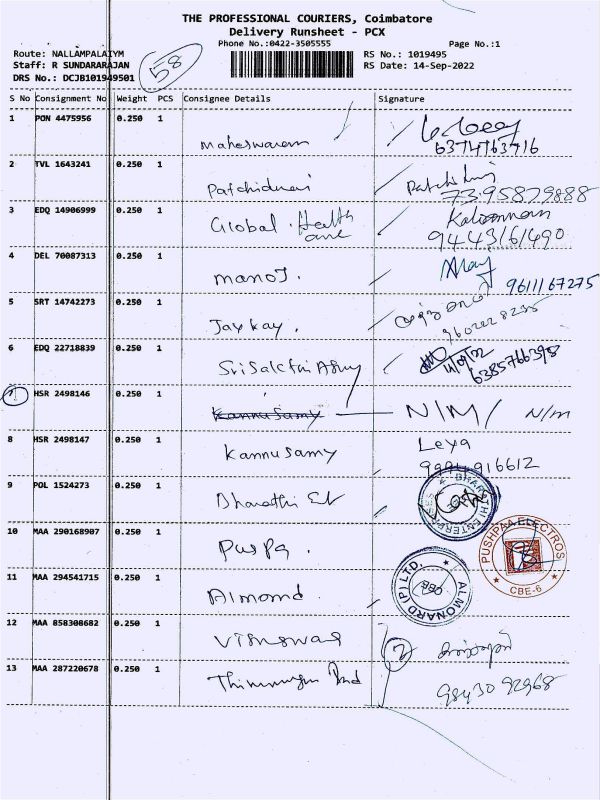 THE PROFESSIONAL COURIERS, Coimbatore
Delivery Runsheet - PCX
Phone No.:0422-3505555 Page No.:1
Route: NALLAMPALAIYM RS No.: 1019495
Staff: R SUNDARARAJAN RS Date: 14-Sep-2022
DRS No.: DCJB101949501
58
S No Consignment No Weight PCS Consignee Details Signature
1 PON 4475956 0.250 1 Maheswaran
6374763716
2 TVL 1643241 0.250 1 Patchidurai
7395879888
3 EDQ 14906999 0.250 1 Global Health care
9443161490
4 DEL 70087313 0.250 1 manoJ.
9611167275
5 SRT 14742273 0.250 1 Jaykay.
6 EDQ 22718839 0.250 1
6385766398
7 HSR 2498146 0.250 1 Kannusamy N/M/ N/M
8 HSR 2498147 0.250 1 Kannusamy Leya
9994916612
9 POL 1524273 0.250 1 Bharathi Ent
BHARATHI ENTERPRISES
10 MAA 290168907 0.250 1 Puspa.
PUSHPAA ELECTROS
CBE-6
11 MAA 294541715 0.250 1 Almond.
ALMONARD (P) LTD.
12 MAA 858308682 0.250 1
2
13 MAA 287220678 0.250 1
98430 92968